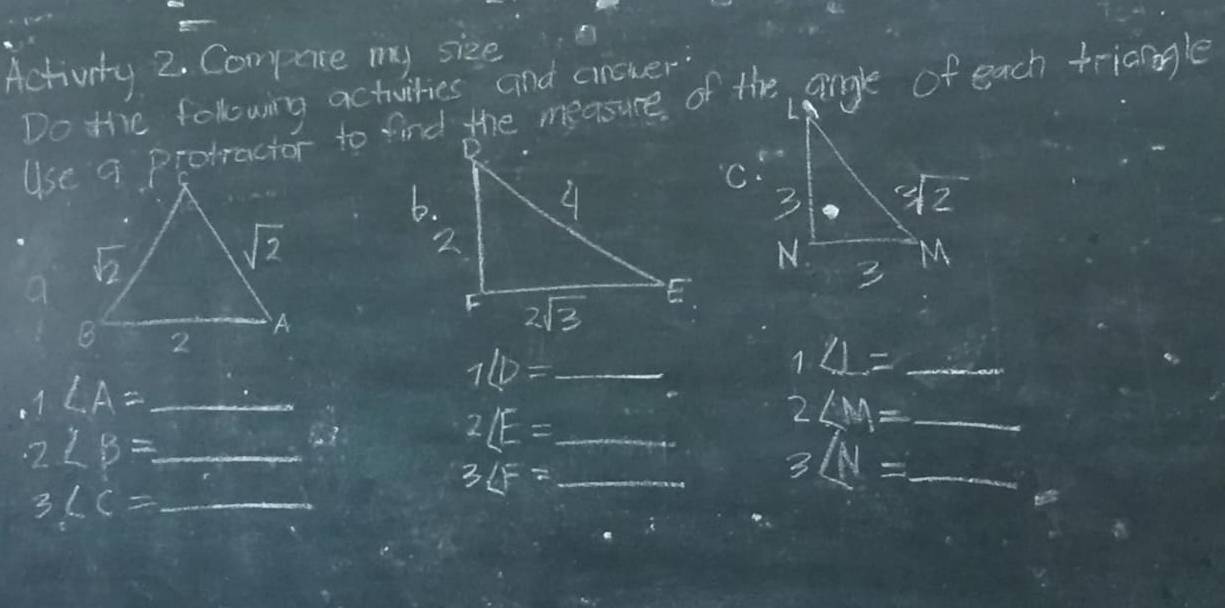 Activity 2. Compare my size
Do the following activities and answer:
Use a protractor to find the measure of the angle of each triangle
a
C
√2
√2
B
A
2
1 ∠A= ______
2 ∠B= ______
3 ∠C= ______
b.
D
2
4
F
E
2√3
1 ∠D= ______
2 ∠E= ______
3 ∠F= ______
c.
L
3
3√2
N
M
3
1 ∠L= ______
2 ∠M= ______
3 ∠N= ______